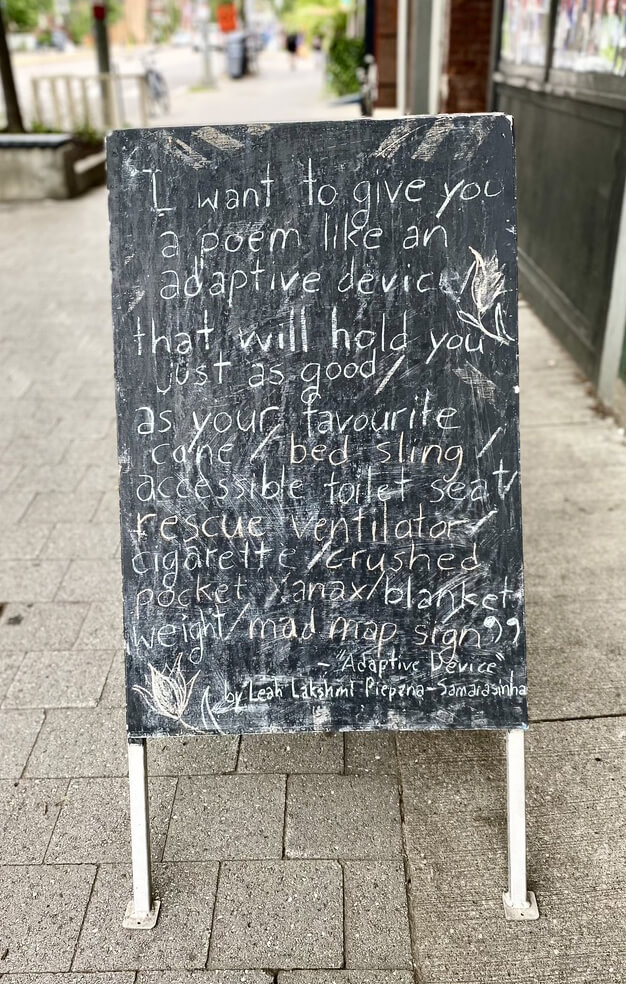 "I want to give you
a poem like an
adaptive device
that will hold you
just as good/
as your favourite
cane / bed sling /
accessible toilet seat/
rescue ventilator/
cigarette /crushed
pocket Xanax/blanket
weight/mad map sign"
- "Adaptive Device"
by Leah Lakshmi Piepzna-Samarasinha